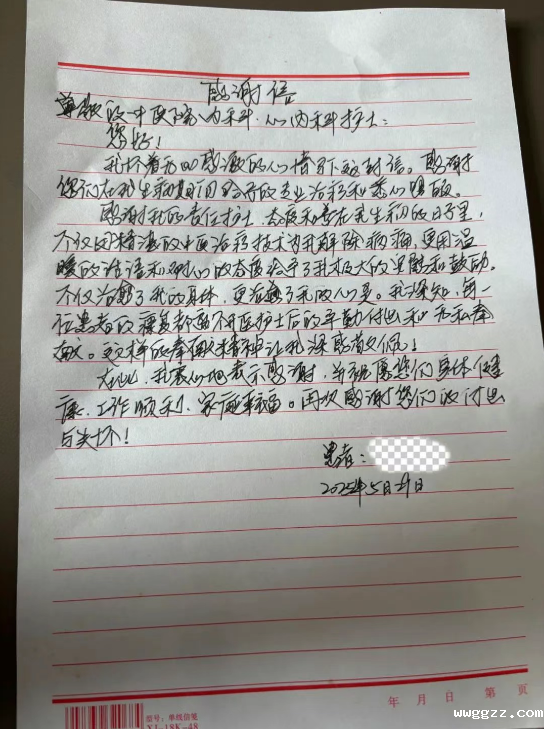 感谢信
尊敬的中医院内科.心内科护士：
您好！
我怀着无比感激的心情写下这封信。感谢
您们在我生病期间给予的专业治疗和悉心照顾。
感谢我的责任护士.态度和善在我生病的日子里，
不仅用精湛的中医治疗技术为我解除病痛，更用温
暖的话语和耐心的态度给予了我极大的安慰和鼓励。
不仅治愈了我的身体，更治愈了我的心灵。我深知，每一
位患者的康复都离不开医护士后的辛勤付出和无私奉
献。这样的奉献精神让我深感敬佩！
在此，我衷心地表示感谢，并祝愿您们身体健
康、工作顺利、家庭幸福。再次感谢您们的付出
与关怀！
患者：
2025年5月29日
年 月 日 第 页
型号：单线信笺
XJ-18K-48
wwggzz.com